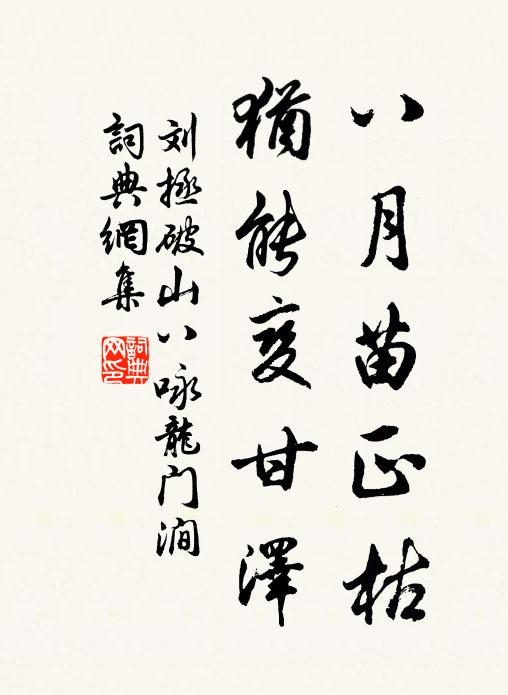 八月苗正枯
犹能变甘澤
刘拯破山八咏龍门涧
詞典網集
詞典
网印